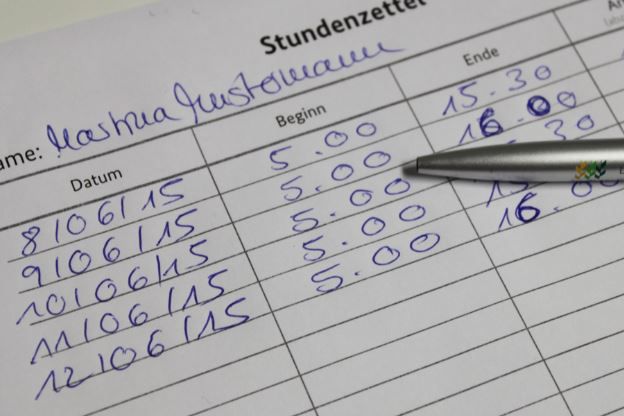 Stundenzettel
ame: Martina Mustermann
Datum Beginn Ende
8/06/15 5.00 15.30
9/06/15 5.00 16.00
10/06/15 5.00 30
11/06/15 5.00 15
12/06/15 5.00 16.00